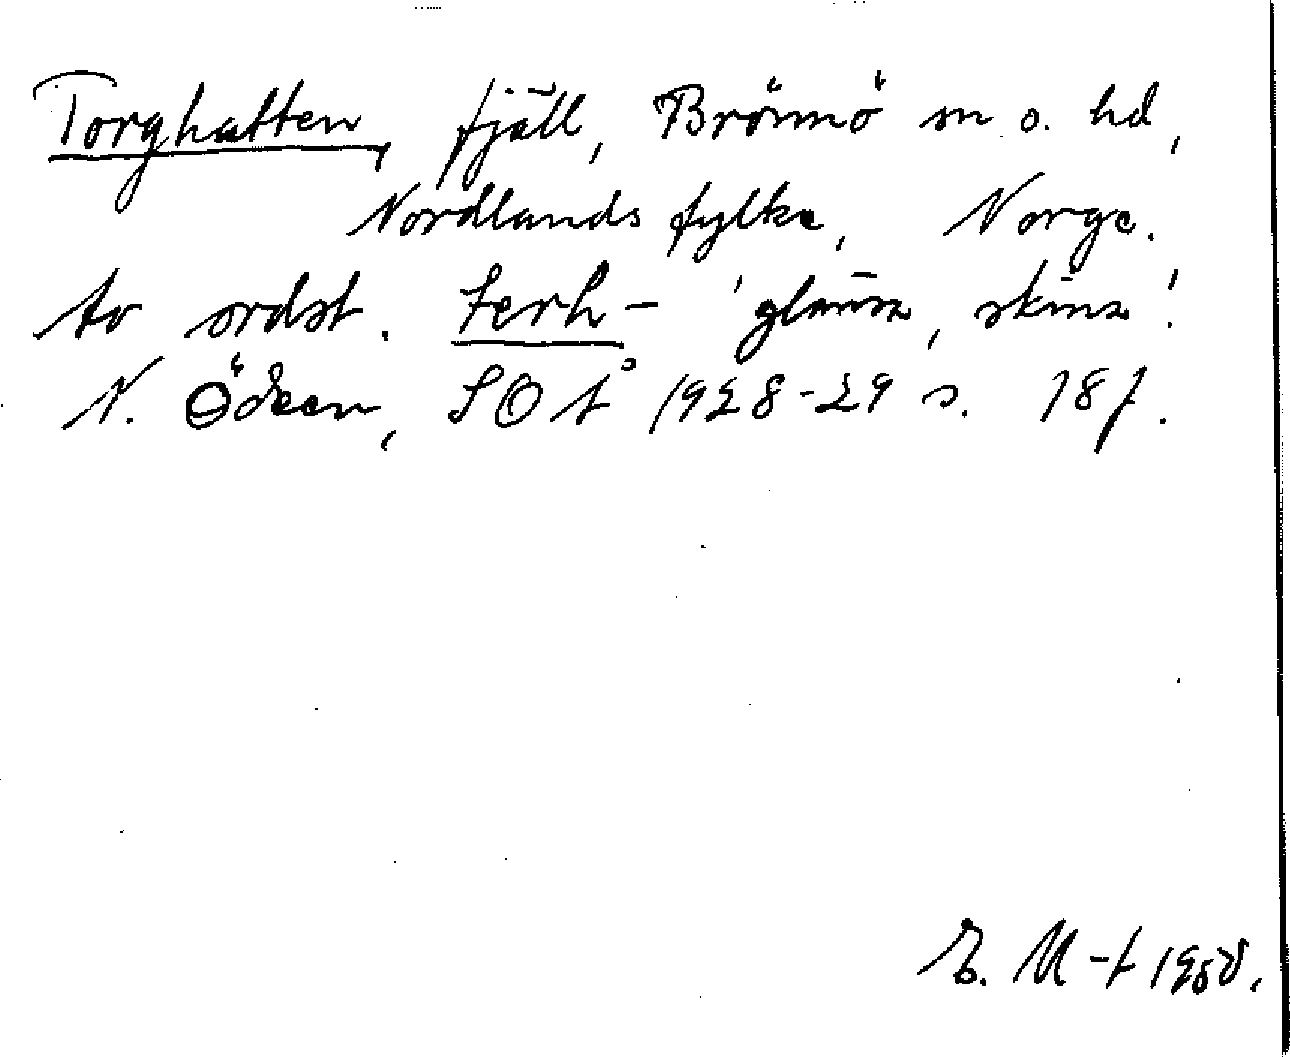 Torghatten, fjäll, Brönnö sn o. hd,
Nordlands fylke, Norge.
Av ordst. terh- 'glänsa, skina'.
N. Ödeen, SOÅ 1928-29 s. 18f.
E. M-t